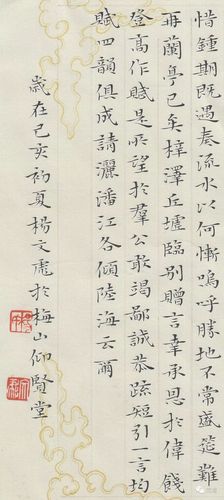 惜鍾期既遇奏流水以何慚嗚呼勝地不常盛筵難
再蘭亭已矣梓澤丘墟臨別贈言幸承恩於偉餞
登高作賦是所望於羣公敢竭鄙誠恭疏短引一言均
賦四韻俱成請灑潘江各傾陸海云爾
歲在己亥初夏楊文於梅山仰賢堂